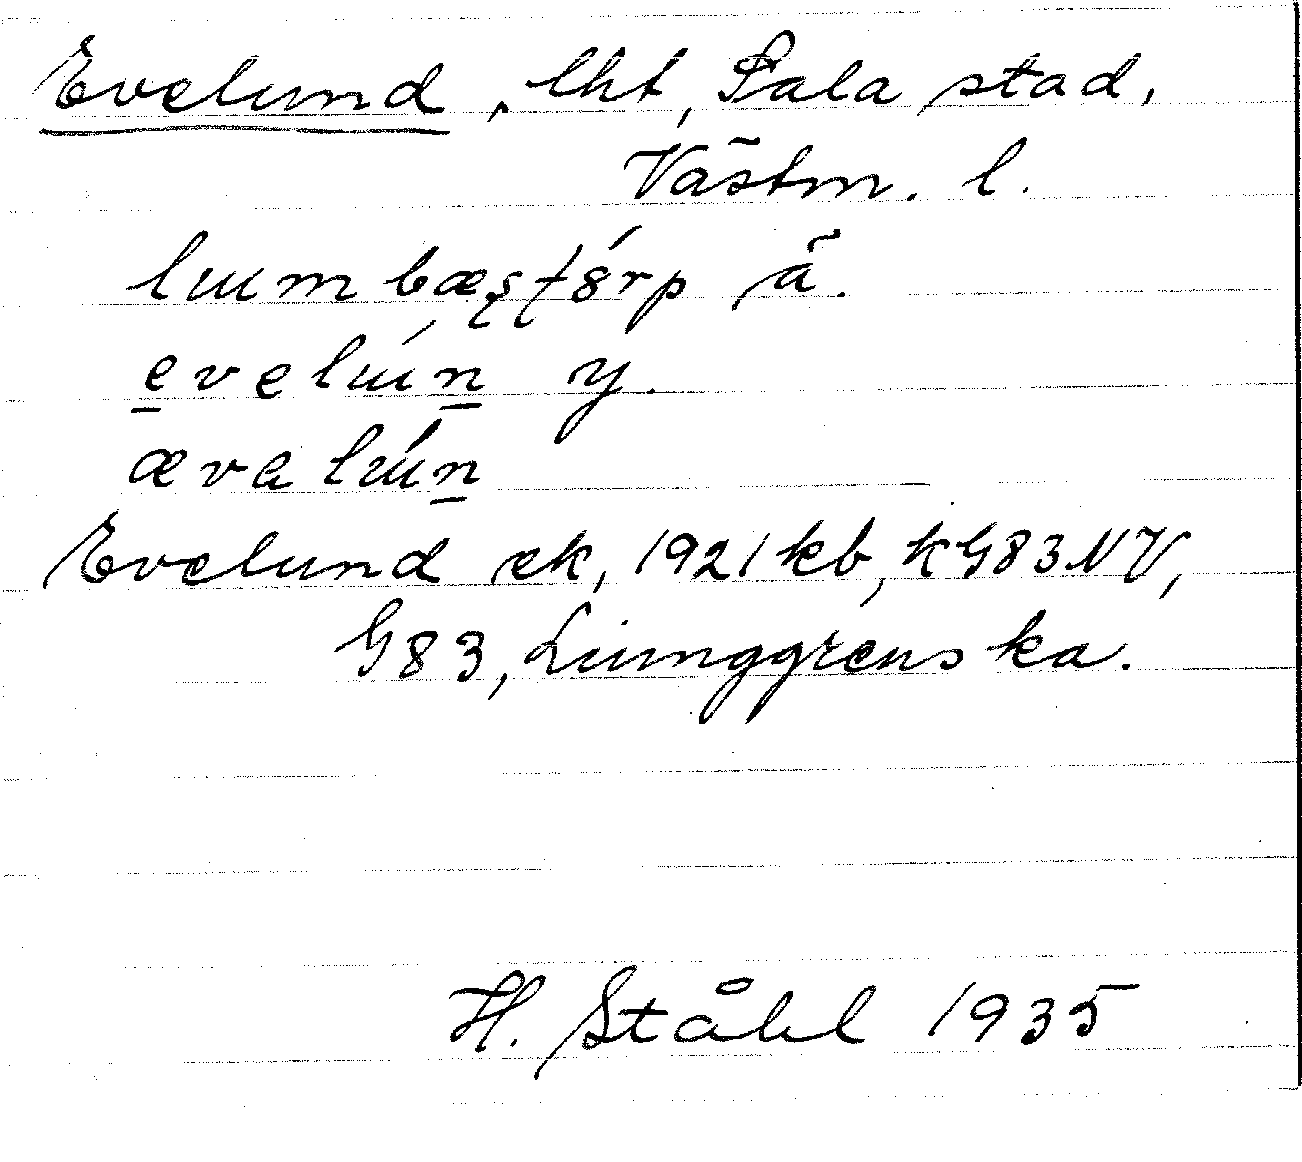 Evelund, lht, Sala stad,
Västm. l.
lɯmbæʂʈórp ä.
evelɯ́n y.
ævalɯ́n
Evelund ek, 1921 kb, kG83NV,
G83, Ljunggrenska.
H. Ståhl 1935